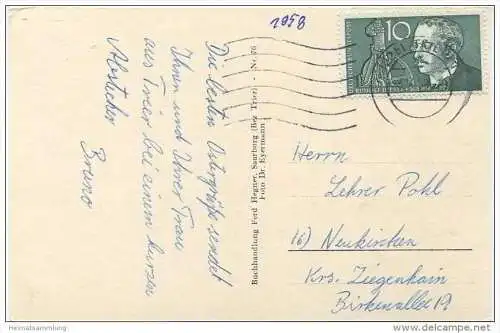 1958
10
Die besten Ostergrüße sendet
Ihnen und Ihrer Frau
aus Trier bei einem kurzen
Abstecher
Bruno
Buchhandlung Ferd Hegner, Saarburg (Bez Trier) - Nr. 76
Foto Dr. Eyermann
Herrn
Lehrer Pohl
16) Neukirchen
Krs. Ziegenhain
Birkenallee 19
Heimatsammlung
delcampe.net